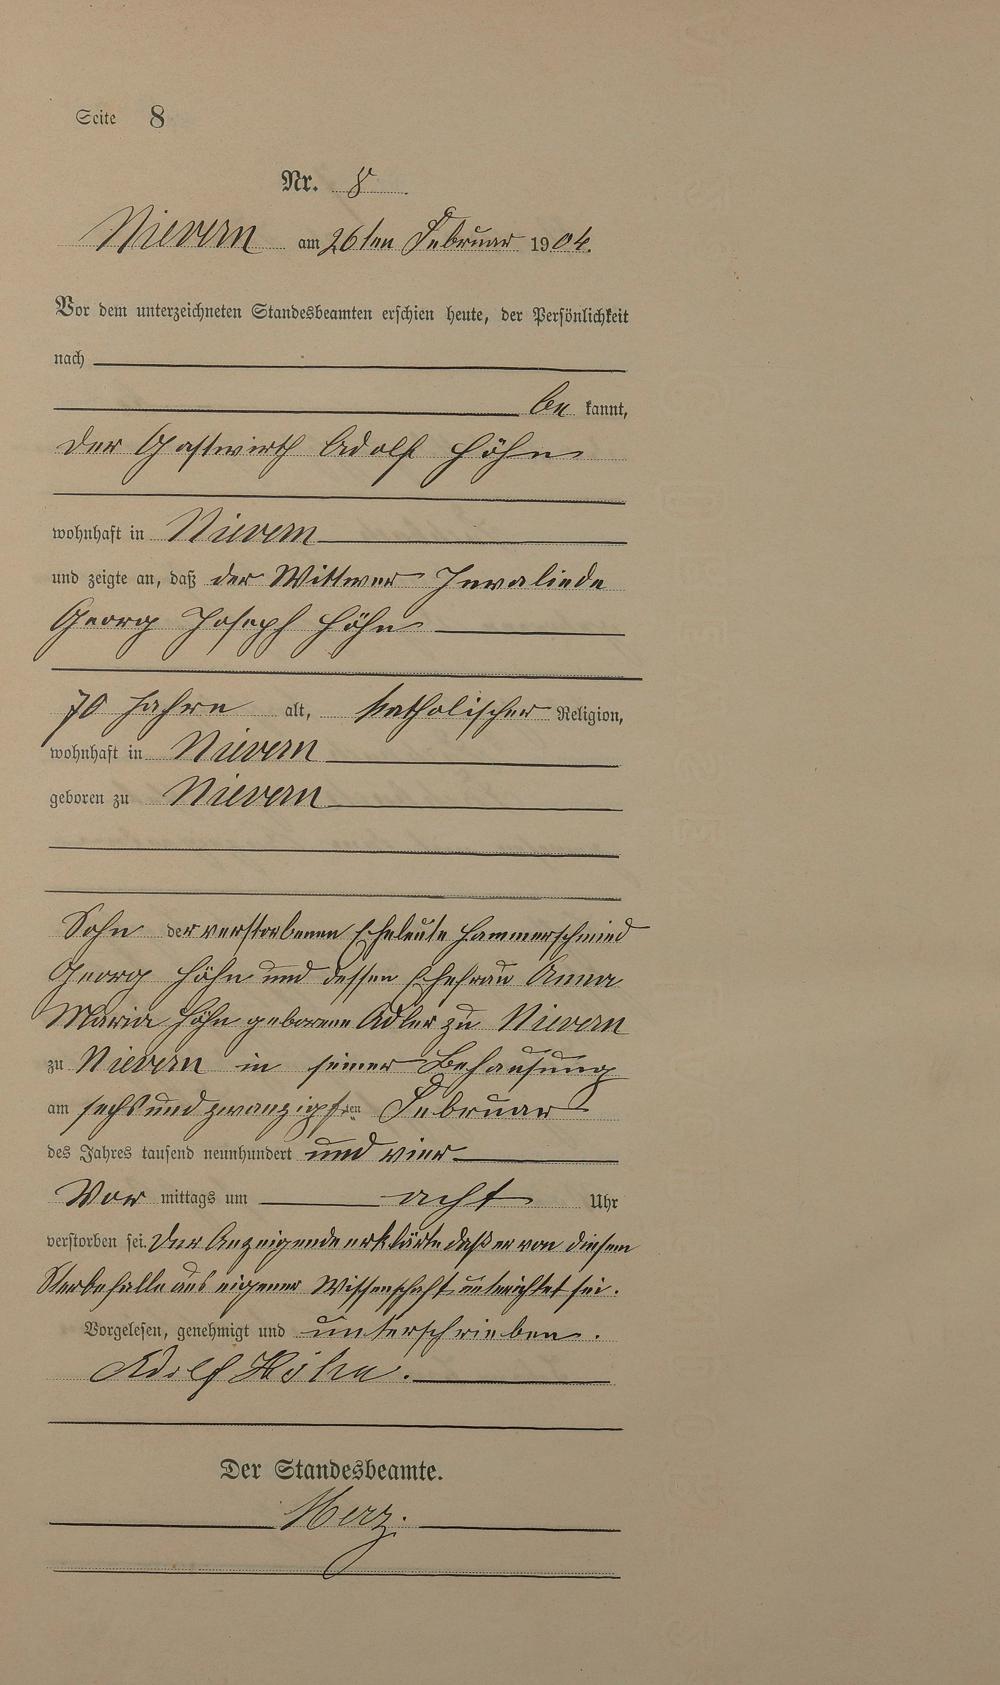 Seite 8
Nr. 8
Nievern am 26ten Februar 1904.
Vor dem unterzeichneten Standesbeamten erschien heute, der Persönlichkeit
nach
be kannt,
der Gastwirth Adolf Höhn
wohnhaft in Nievern
und zeigte an, daß der Wittwer Invaliede
Georg Joseph Höhn
70 Jahre alt, katholischer Religion,
wohnhaft in Nievern
geboren zu Nievern
Sohn der verstorbenen Eheleute Hammerschmied
Georg Höhn und dessen Ehefrau Anna
Maria Höhn geborene Adler zu Nievern
zu Nievern in seiner Behausung
am sechs und zwanzigsten Februar
des Jahres tausend neunhundert und vier
Vor mittags um acht Uhr
verstorben sei. Der Anzeigende erklärte daß er von diesem
Sterbefalle aus eigener Wissenschaft unterichtet sei.
Vorgelesen, genehmigt und unterschrieben.
Adolf Höhn.
Der Standesbeamte.
Merz.